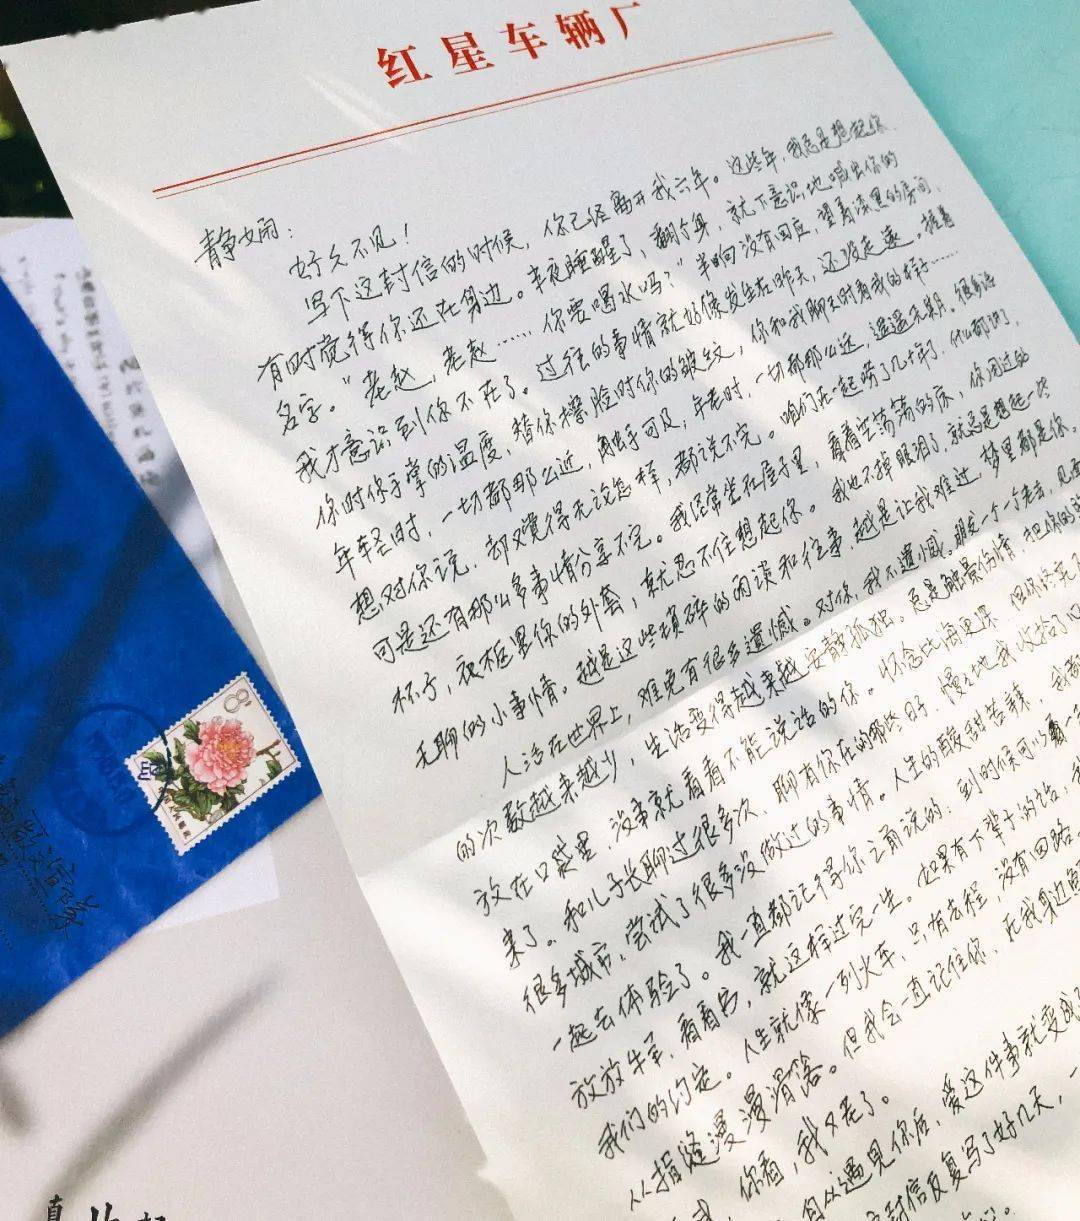 红星车辆厂
静娴：
好久不见！
写下这封信的时候，你已经离开我六年。这些年，我总是想起你
有时觉得你还在身边。半夜睡醒了，翻个身，就下意识地喊出你的
名字。“老赵，老赵……你要喝水吗？”半响没有回应，望着漆黑的房间，
我才意识到你不在了。过往的事情就好像发生在昨天，还没走远。握着
你时你手掌的温度，替你擦脸时你的皱纹，你和我聊天时看我的样子……
年轻时，一切都那么近，触手可及，年老时，一切都那么远，遥遥无期。很多话
想对你说，却又觉得无论怎样，都说不完。咱们在一起唠了几十年了，什么都说了，
可是还有那么多事情分享不完。我经常坐在屋子里，看着空荡荡的床，你用过的
杯子，衣柜里你的外套，就忍不住想起你。我也不掉眼泪了，就总是想起一些
无聊的小事情。越是这些琐碎的闲谈和往事，越是让我难过，梦里都是你。
人活在世界上，难免有很多遗憾。对你，我不遗憾。朋友一个个老去，见面
的次数越来越少，生活变得越来越安静孤独。总是触景伤情，把你的
放在口袋里，没事就看看不能说话的你。怀念比海更深，但你终究
来了。和儿子长聊过很多次，聊有你在的那些日子，慢慢地我收拾了心
很多城市，尝试了很多没做过的事情。人生的酸甜苦辣，我都
一起去体验了。我一直都记得你之前说的：到时候可以
放放牛羊，看看书，就这样过完一生。如果有下辈子的话，我
我们的约定。人生就像一列火车，只有去程，没有回路。
从指缝漫漫滑落。但我会一直记住你，在我身边
你看，我又老了。
自从遇见你后，爱这件事就变成
封信反复写了好几天，一
8